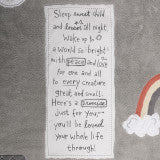 Sleep sweet child
and dream all night.
Wake up to
a world so bright
with peace and love
for one and all
to every creature
great and small.
Here's a promise
just for you,
you'll be loved
your whole life
through!